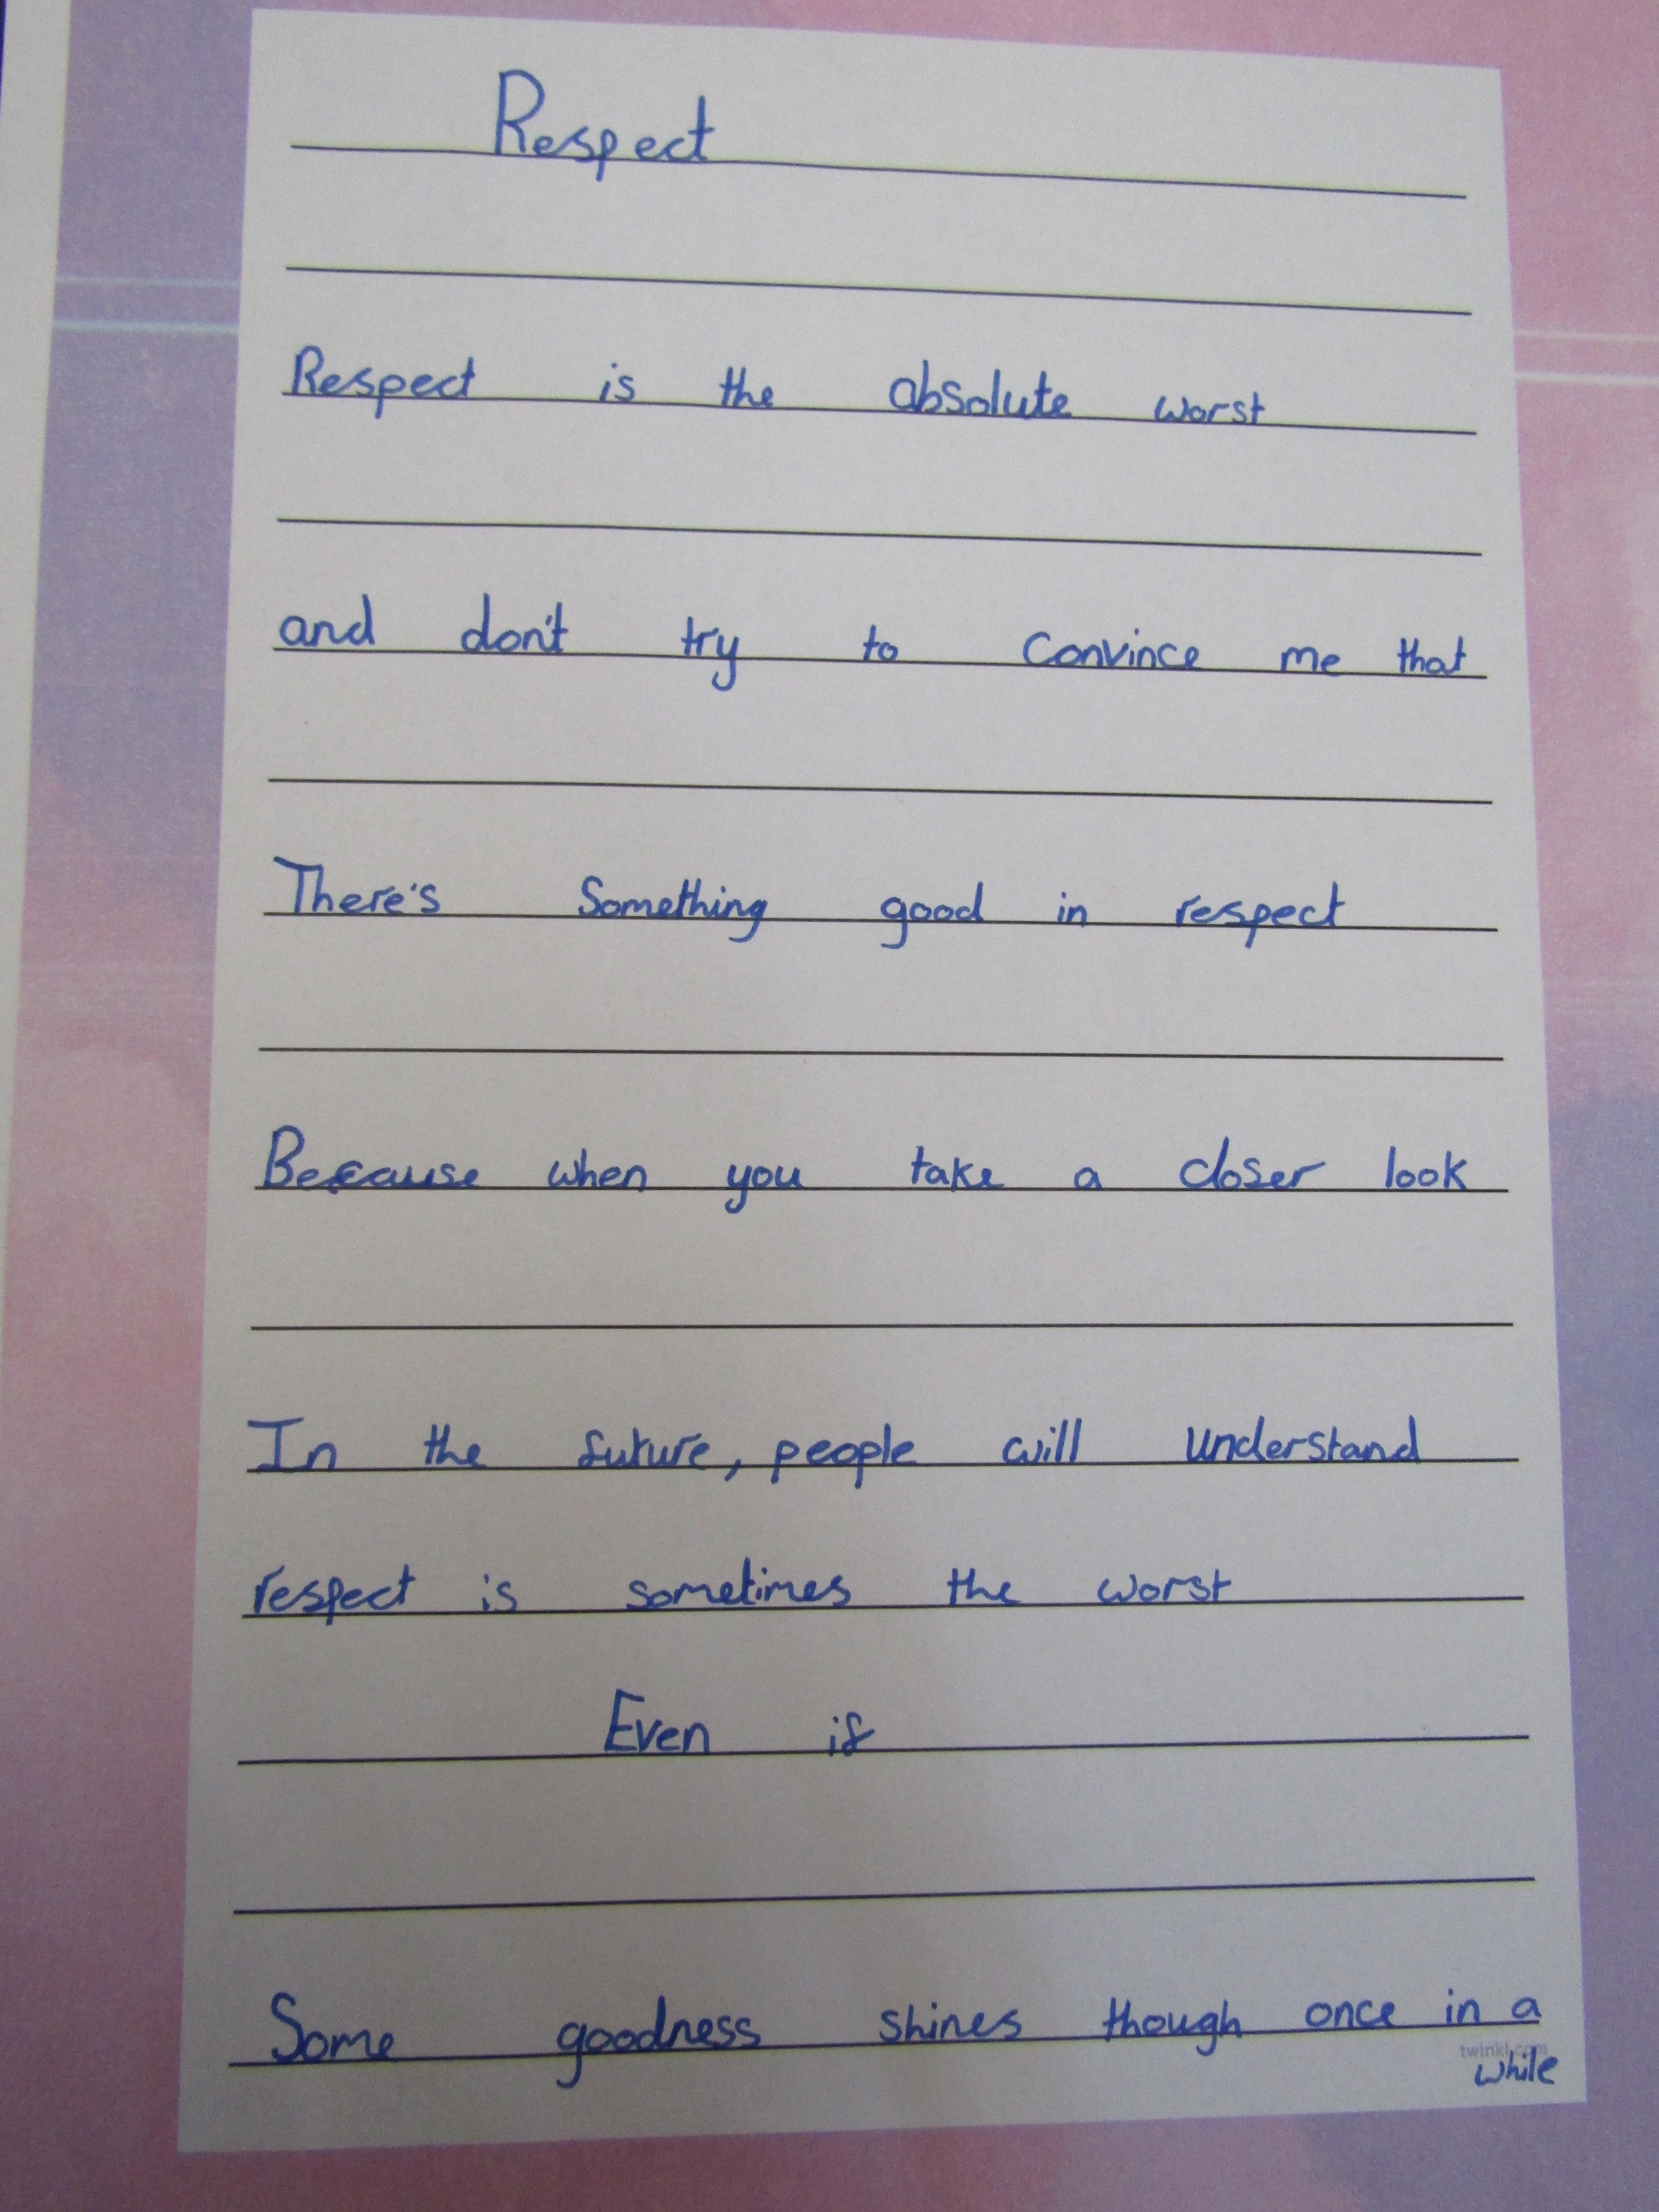 Respect
Respect is the absolute worst
and don't try to convince me that
There's Something good in respect
Because when you take a closer look
In the future, people will understand
respect is sometimes the worst
Even if
Some goodness shines though once in a
while
twinkl.com